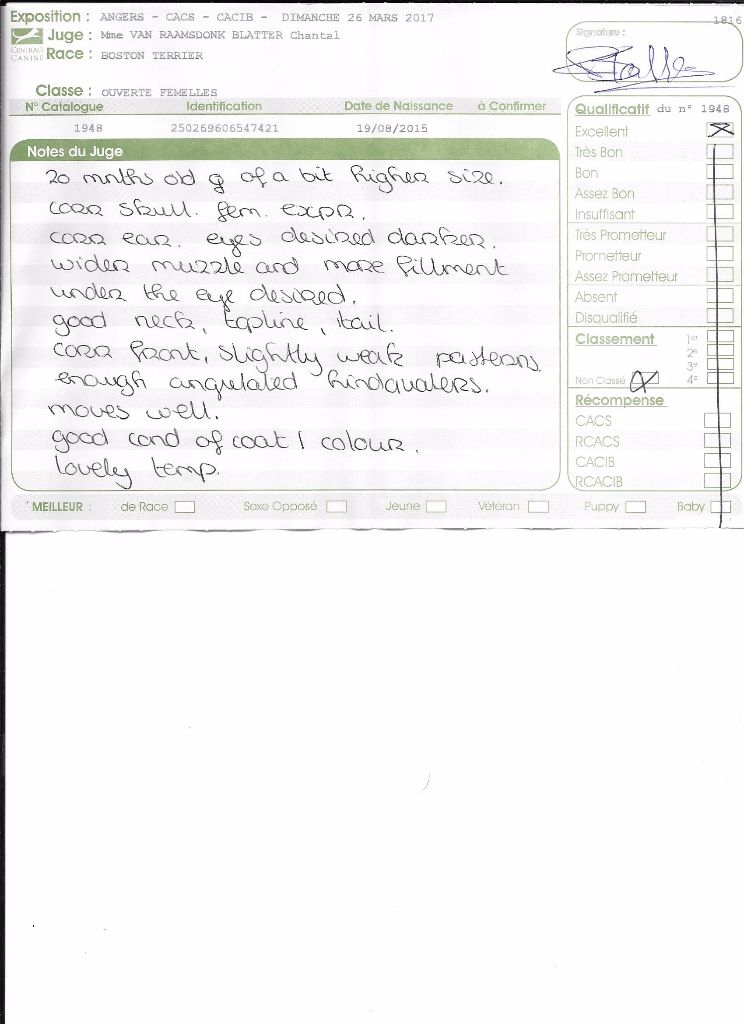 1816
Exposition : ANGERS - CACS - CACIB - DIMANCHE 26 MARS 2017
Juge : Mme VAN RAAMSDONK BLATTER Chantal
CENTRALE CANINE
Race : BOSTON TERRIER
Signature :
Classe : OUVERTE FEMELLES
N° Catalogue Identification Date de Naissance à Confirmer
1948 250269606547421 19/08/2015
Notes du Juge
20 mnths old ♀ of a bit higher size.
corr skull. fem. expr.
corr ear. eyes desired darker.
wider muzzle and more fillment
under the eye desired.
good neck, topline, tail.
corr front, slightly weak pasterns
enough angulated hindquaters.
moves well.
good cond of coat / colour.
lovely temp.
Qualificatif du n° 1948
Excellent
Très Bon
Bon
Assez Bon
Insuffisant
Très Prometteur
Prometteur
Assez Prometteur
Absent
Disqualifié
Classement 1er
2e
3e
Non Classé 4e
Récompense
CACS
RCACS
CACIB
RCACIB
MEILLEUR : de Race Sexe Opposé Jeune Vétéran Puppy Baby